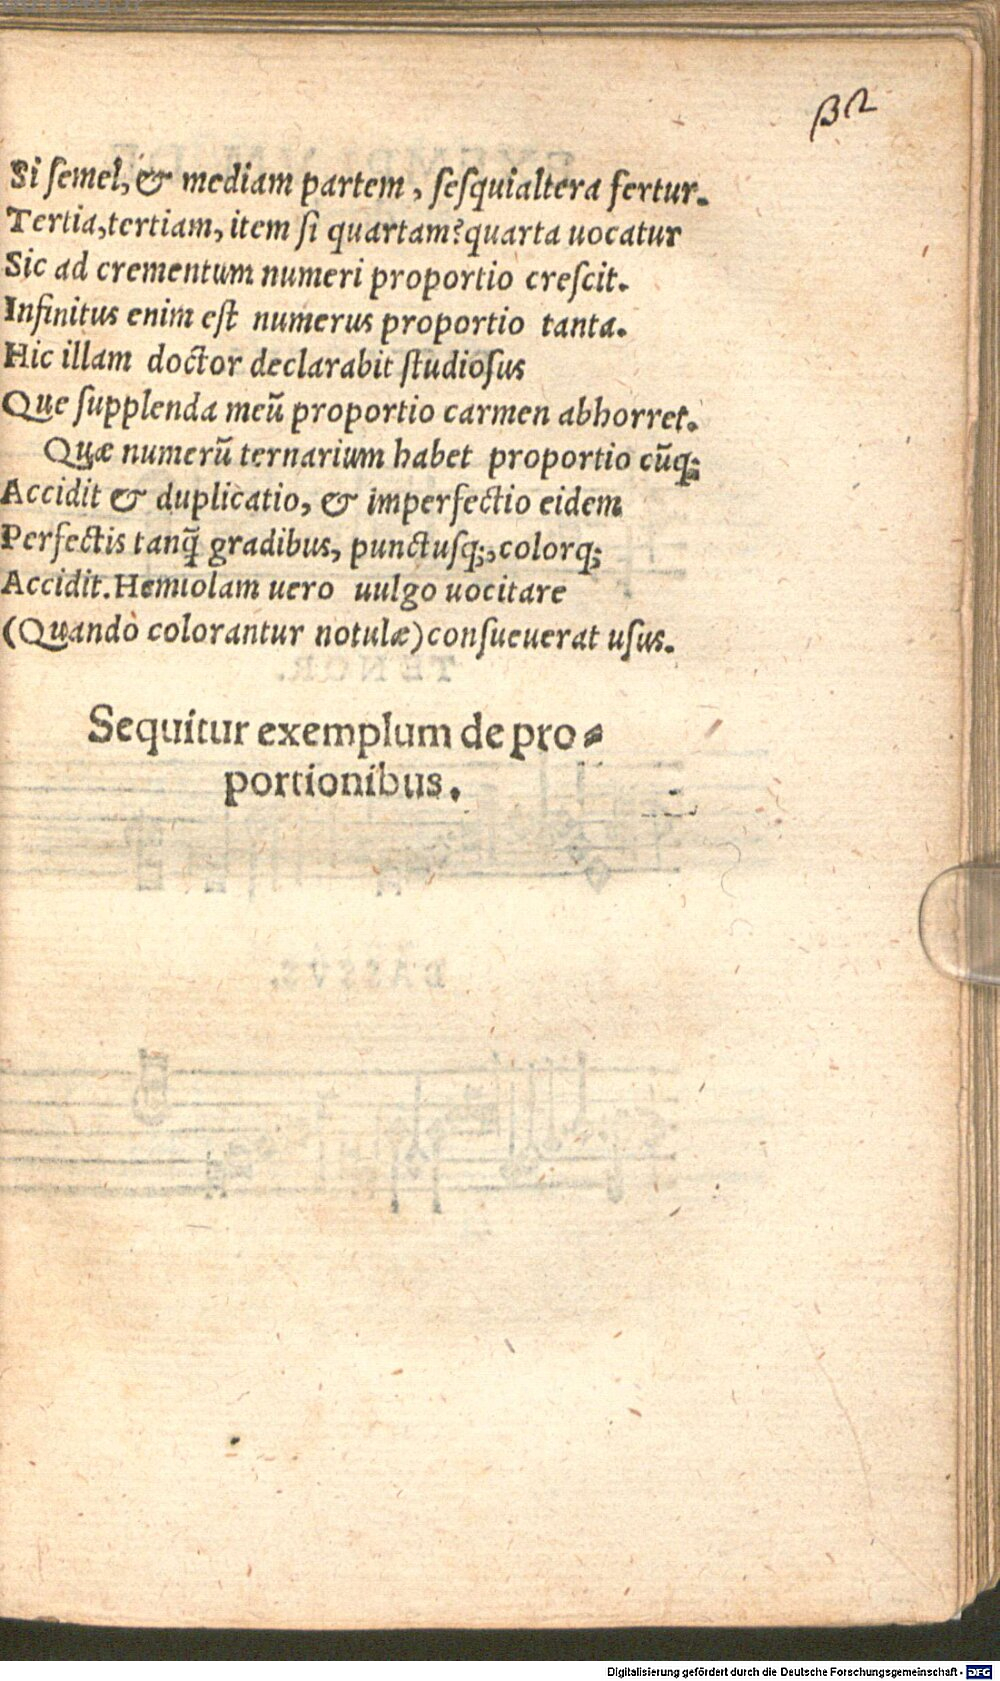 32
Si ſemel, & mediam partem, ſeſquialtera fertur.
Tertia, tertiam, item ſi quartam? quarta uocatur
Sic ad crementum numeri proportio creſcit.
Infinitus enim eſt numerus proportio tanta.
Hic illam doctor declarabit ſtudioſus
Que ſupplenda meũ proportio carmen abhorret.
Quæ numerũ ternarium habet proportio cũq;
Accidit & duplicatio, & imperfectio eidem
Perfectis tanq̃ gradibus, punctuſq;, colorq;
Accidit. Hemiolam uero uulgo uocitare
(Quando colorantur notulæ) conſueuerat uſus.
Sequitur exemplum de pro⸗
portionibus.
TENOR.
BASSVS.
Digitalisierung gefördert durch die Deutsche Forschungsgemeinschaft - DFG